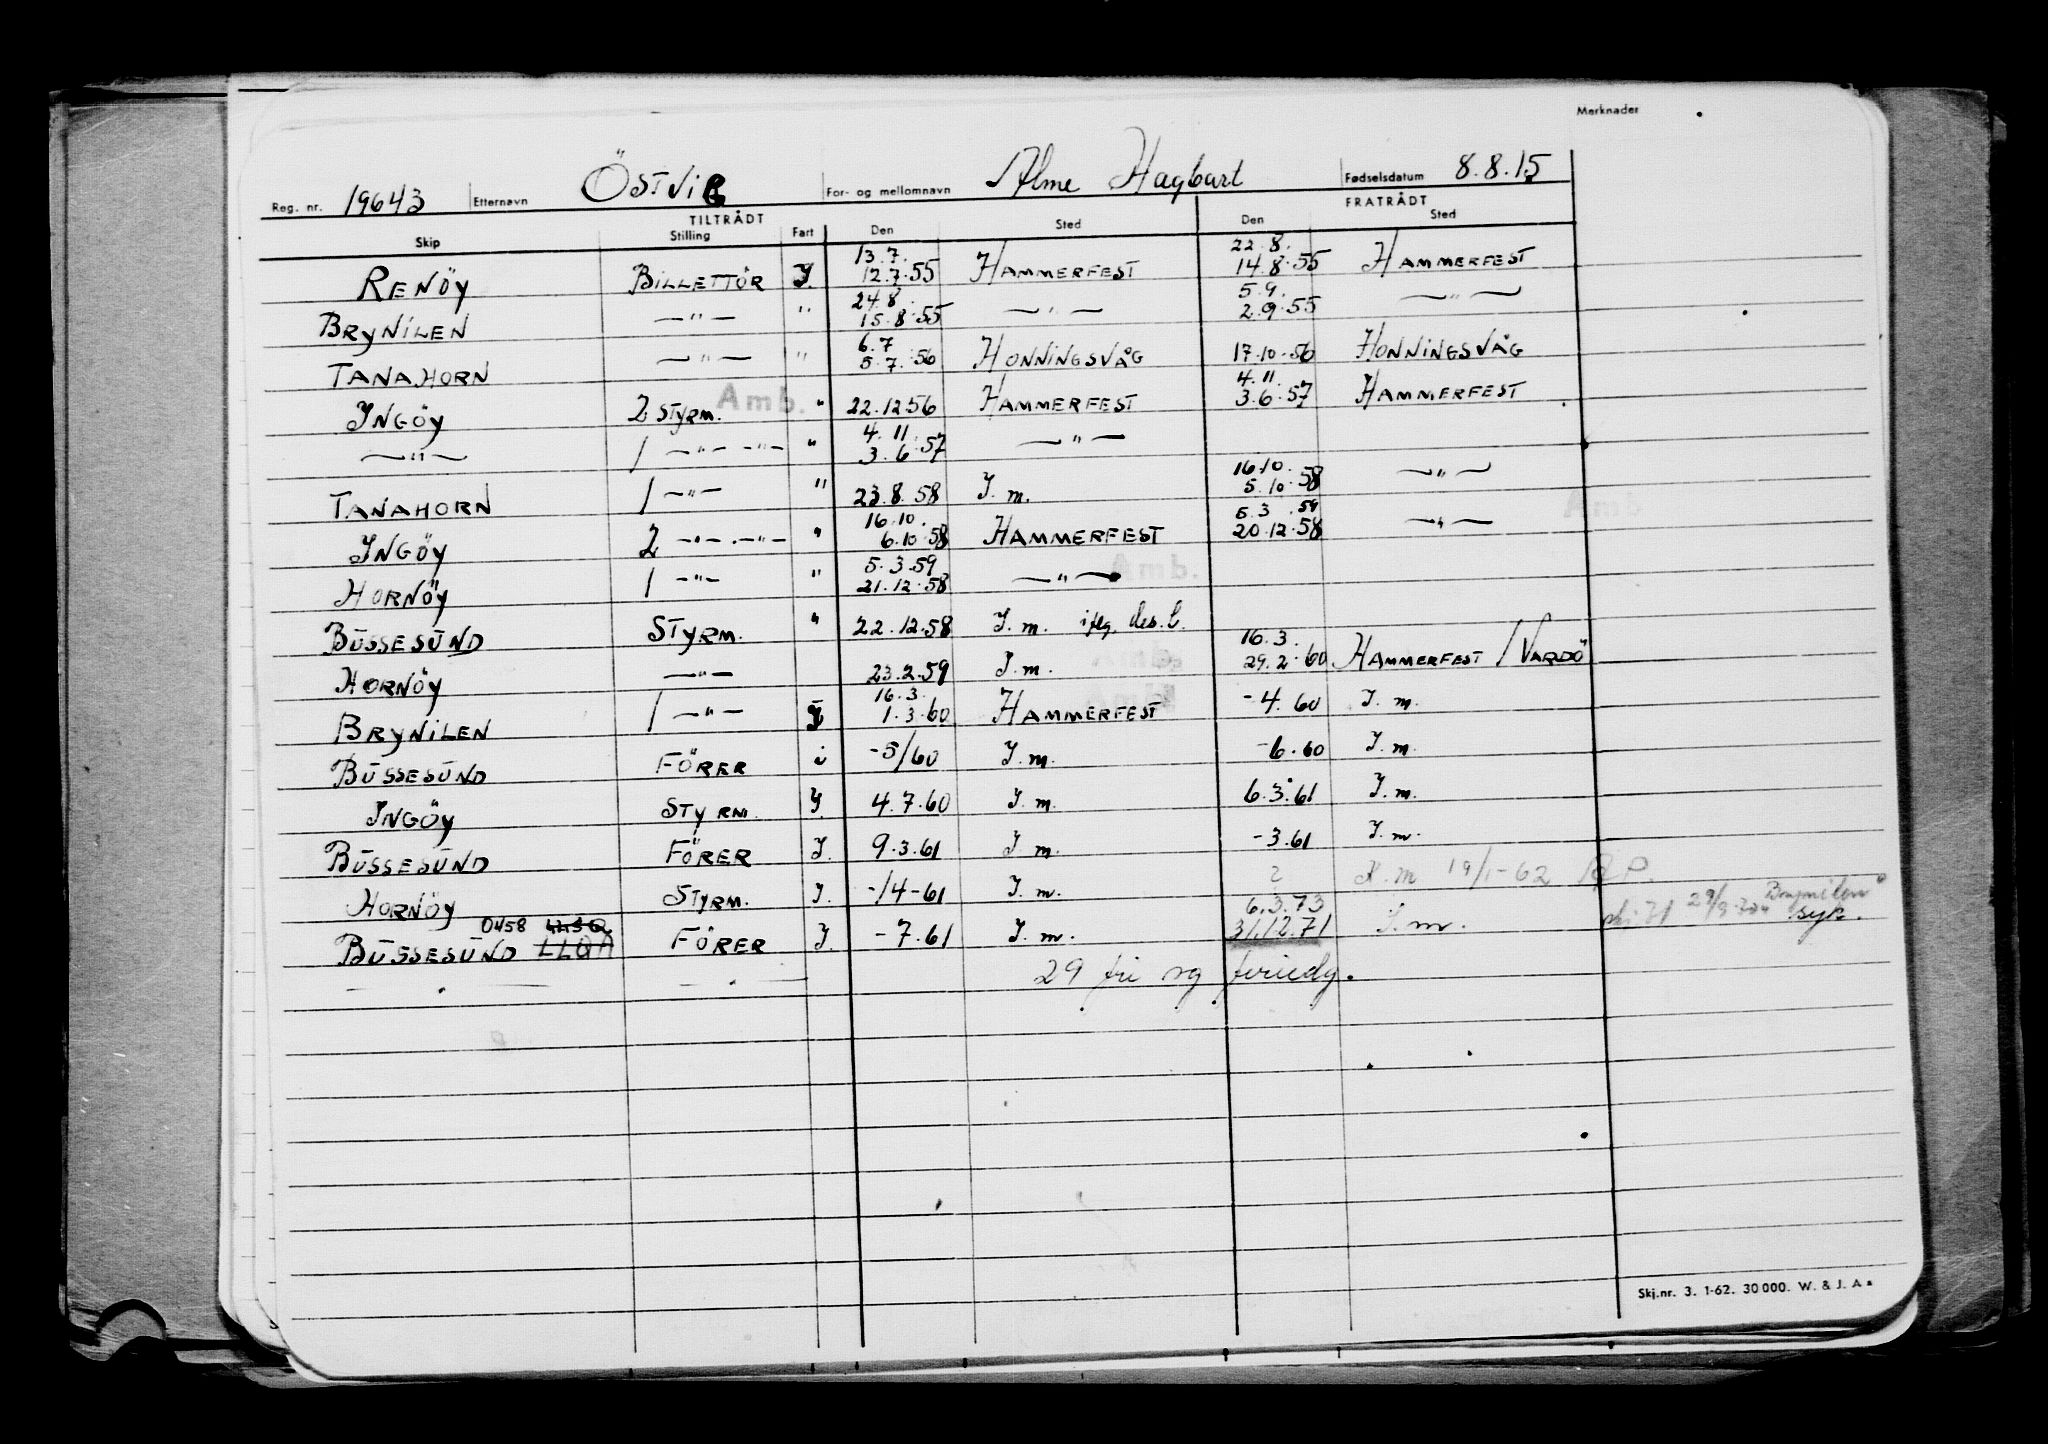 Merknader
Reg. nr. 19643 Etternavn ÖSTVIG For- og mellomnavn Alme Hagbart Fødselsdatum 8.8.15
TILTRÅDT FRATRÅDT
Skip Stilling Fart Den Sted Den Sted
13.7. 22.8.
RENÖY BILLETTÖR J. 12.7.55 HAMMERFEST 14.8.55 HAMMERFEST
24.8. 5.9.
BRYNILEN —"— " 15.8.55 —"— 2.9.55 —"—
6.7
TANAHORN —"— " 5.7.56 HONNINGSVÅG 17.10.56 HONNINGSVÅG
4.11.
INGÖY 2 STYRM. Amb. " 22.12.56 HAMMERFEST 3.6.57 HAMMERFEST
4.11.
—"— 1 —"— —"— " 3.6.57 —"—
16.10.
TANAHORN 1 —"— " 23.8.58 J.m. 5.10.58 —"—
16.10. 5.3.59
INGÖY 2 —"— —"— " 6.10.58 HAMMERFEST 20.12.58 —"—
5.3.59
HORNÖY 1 —"— " 21.12.58 —"—
BUSSESUND STYRM. " 22.12.58 J.m.
16.3.
HORNÖY —"— 23.2.59 J.m. 29.2.60 HAMMERFEST / VARDÖ
16.3.
BRYNILEN 1 —"— J 1.3.60 HAMMERFEST -4.60 J.m.
BUSSESUND FÖRER i -5/60 J.m. -6.60 J.m.
INGÖY STYRM. J 4.7.60 J.m. 6.3.61 J.m.
BUSSESUND FÖRER J. 9.3.61 J.m. -3.61 J.m.
HORNÖY STYRM. J. -/4-61 J.m. 2 19/1-62
0458 6.3.73 Brynilen
BUSSESUND LLQA FÖRER J. -7.61 J.m. 31.12.71 J.m. syk.
—"— —"— 29 fri og feriedg.
Skj.nr. 3. 1-62. 30 000. W. & J. A s